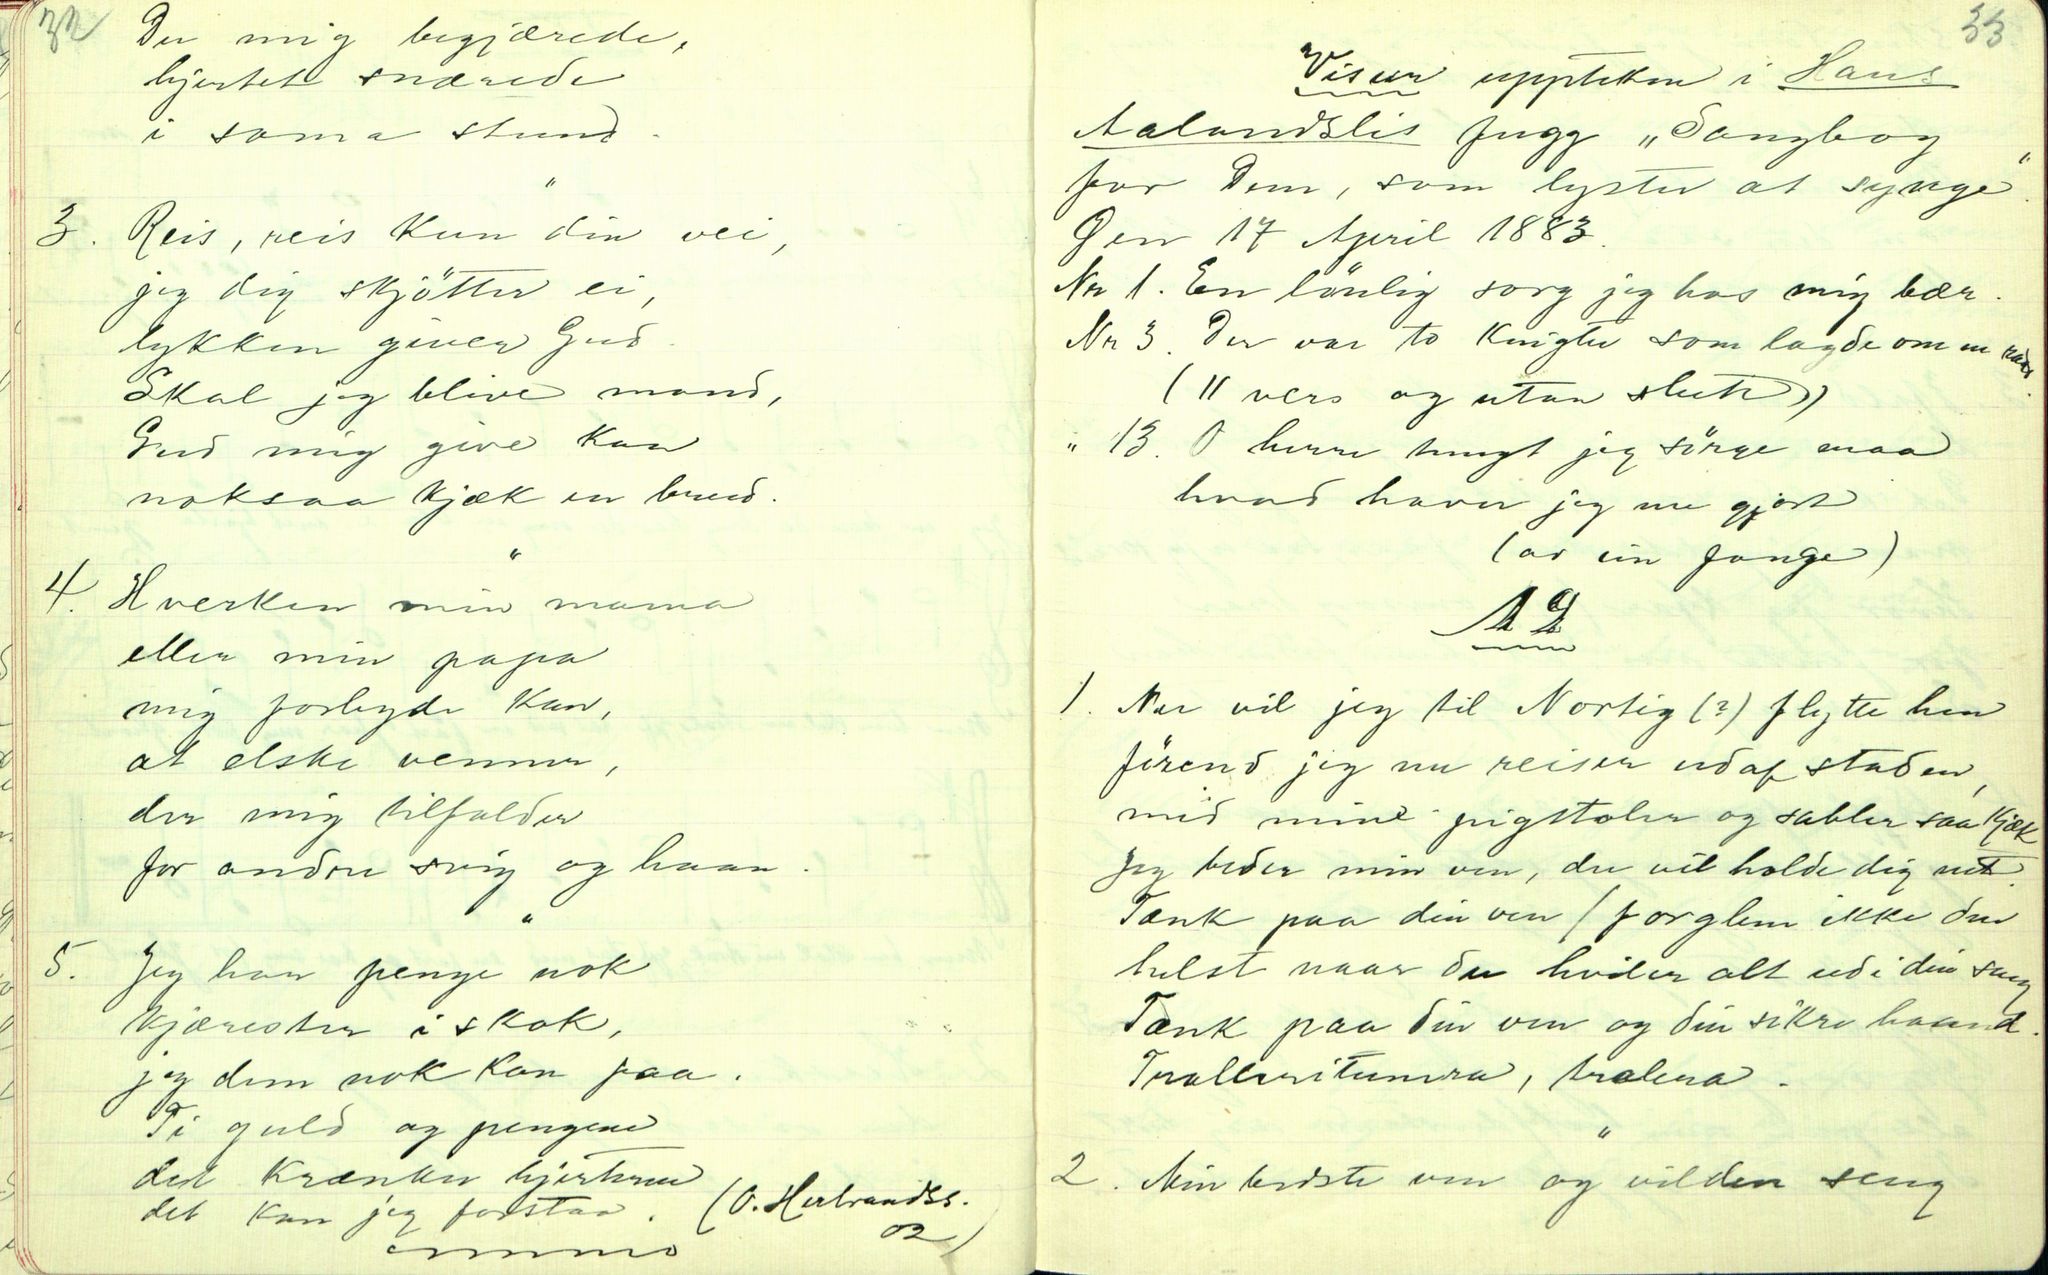 32
Du mig begjærede,
hjertet snærede
i sama stund.
"
3. Reis, reis kun din vei,
jeg dig skjötter ei,
lykken giver Gud.
Skal jeg blive mand,
Gud mig give kan
noksaa kjæk en brud.
"
4. Hverken min mama
eller min papa
mig forbyde kan,
at elske venner,
der mig tilfalder
for andre svig og haan.
"
5. Jeg har penge nok
kjærester i skok,
jeg dem nok kan faa.
Ti guld og pengene
det krænker hjerterne
det kan jeg forstaa. (O. Herbrandss.
02)
33
Visur uppteken i Hans
Aalandslis fugg „Sangbog
for Dem, som lyster at synge".
Den 17 April 1883.
Nr 1. En lönlig sorg jeg hos mig bær.
Nr 3. Der var to knigter som lagde om en raad.
(11 vers og utan slutt)
" 13. O herre tungt jeg sörge maa
hvad haver jeg nu gjort
(av ein fange)
12
1. Nu vil jeg til Nortig (?) flytte hen
förend jeg nu reiser ud af staden,
med mine pigstoler og sabler saa kjæk
Jeg beder min ven, du vil holde dig net.
Tænk paa din ven / forglem ikke den
helst naar du hviler alt ud i din seng
Tænk paa din ven og din sikre haand.
Tralleritumra, tralera.
"
2. Min bedste ven og vilden seng